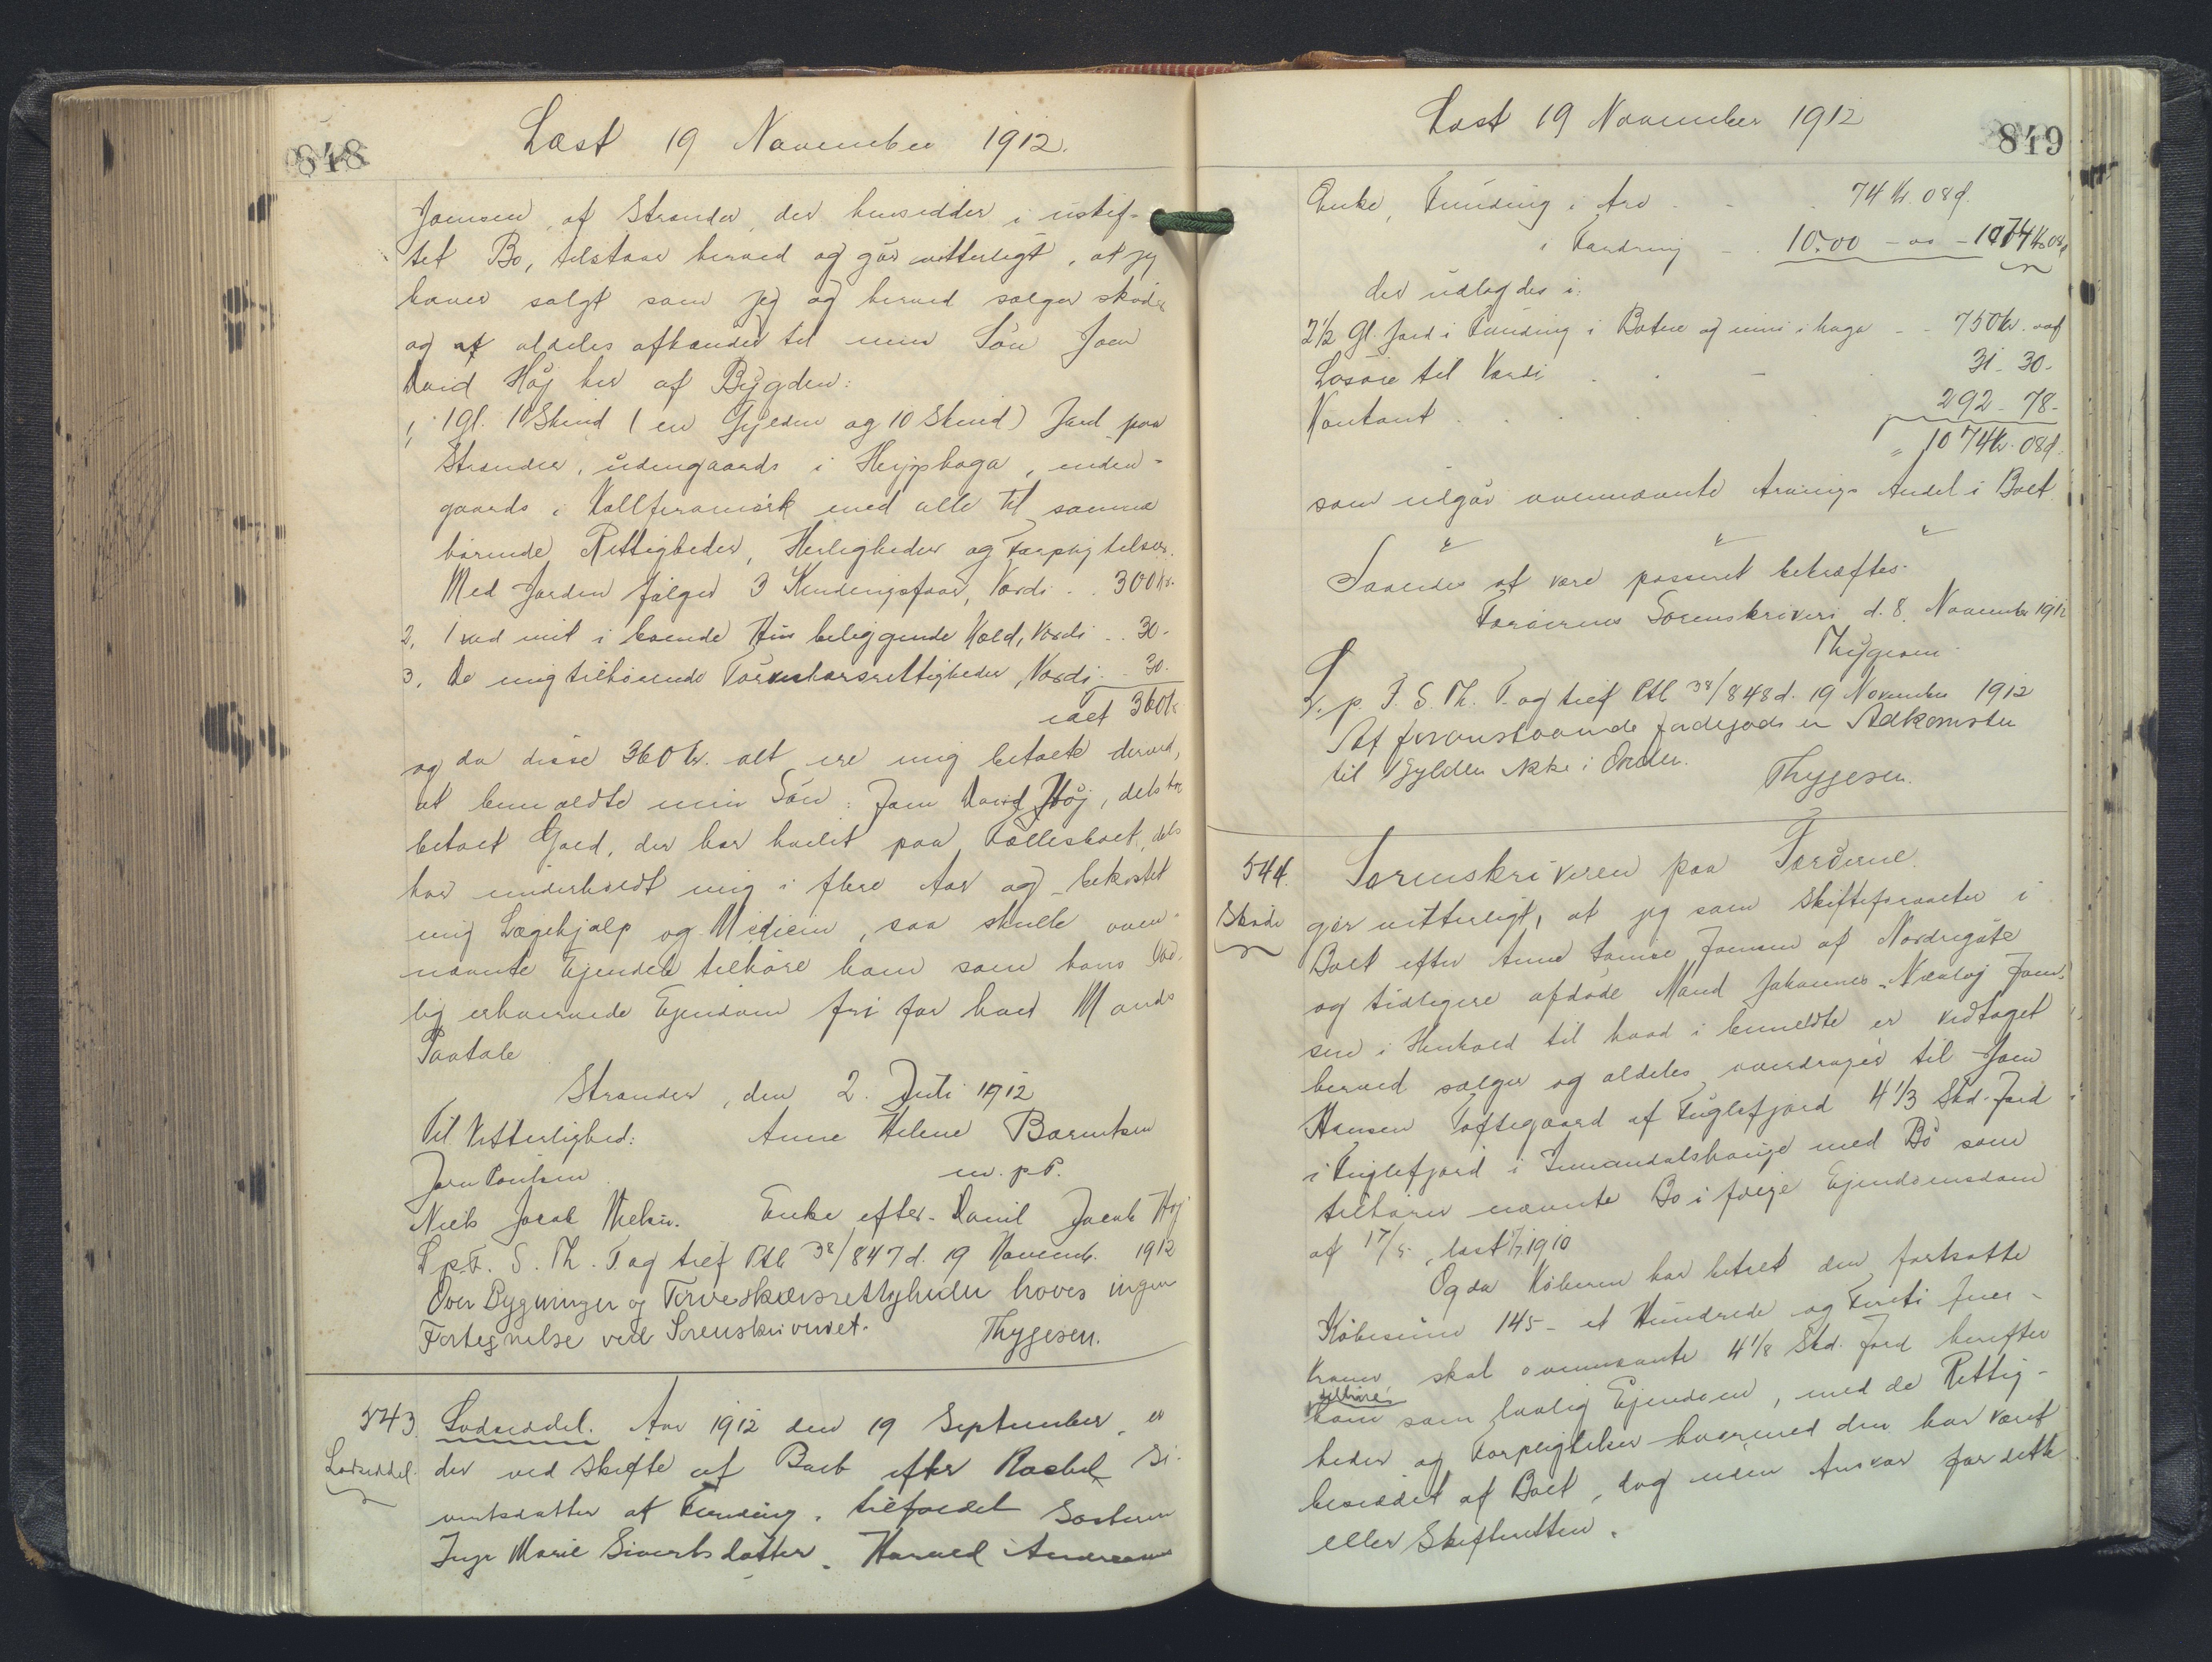 848
Læst 19 November 1912.
Joensen, af Strander, der hensidder i uskif-
tet Bo, tilstaar herved og gör vitterligt, at jeg
haver solgt som jeg og herved sælger sköder
og af aldeles afhænder til min Sön Joen
David Höj her af Bygden:
1, 1 Gl. 10 Skind (en Gylden og 10 Skind) Jord paa
Strander, udengaards i Hejghaga, inden-
gaards i med alle til samme
hörende Rettigheder, Herligheder og Forpligtelser.
Med Jorden fölger 3 Kvidningsfaar, Værdi . . 300 Kr.
2, 1 ved mit i boende Hus beliggende Kold, Værdi . . 30 -
3, De mig tilhörende Törveskærsrettigheder, Værdi . . 30 -
ialt 360 K
og da disse 360 Kr. alt ere mig betalt derved,
at bemældte min Sön: Joen David Höj, dels har
betalt Gæld, der har hvilet paa Fællesboet, dels
har underholdt mig i flere Aar og bekostet
mig Lægehjælp og Medicin, saa skulle oven-
nævnte Ejendele tilhöre ham som hans lov-
lig erhvervede Ejendom fri for hver Mands
Paatale
Strander, den 2. Juli 1912
Til Vitterlighed: Anne Helene Barentsen
Jorn Poulsen m. p. P.
Niels Jacob Nielsen. Enke efter Daniel Jacob Höj
L. p. F. S. Th. T. og tilf Ptb 38/847 d. 19 Novemb. 1912
Over Bygninger og Törveskærsrettigheder haves ingen
Fortegnelse ved Sorenskriveriet. Thygesen.
543. Lodseddel. Aar 1912 den 19 September, er
Lodseddel. der ved Skifte af Boet efter Rachel Si-
vertsdatter af Funding, tilfaldet Sösteren
Inger Marie Sivertsdatter, Harald Andreasens
849
Læst 19 November 1912
Enke, Funding i Arv - - 74 Kr. 08 Ø.
i Fordring - . 1000 - 00 - 1074 Kr 08 Ø
der udlagdes i:
2 1/2 Gl. Jord i Funding i Botne og inni i haga - - 750 Kr. 00 Ø
Lösöre til Værdi . . - . 31 - 30 -
Kontant . . . . . 292 - 78 -
" 1074 Kr. 08 Ø.
som udgör ovennævnte Arvings Andel i Boet
" " "
Saaledes at være passeret bekræftes.
Færöernes Sorenskriveri d. 8. November 1912
Thygesen
L. p. F. S. Th. T. og tilf Ptb 38/848 d. 19 November 1912
Af foranstaaende Jordegods er Adkomsten
til 1 Gylden ikke i Orden. Thygesen.
544. Sorenskriveren paa Færöerne
Sköde gör vitterligt, at jeg som Skifteforvalter i
Boet efter Anne Lovise Joensen af Nordregöte
og tidligere afdöde Mand Johannes Joen-
sen i Henhold til hvad i bemeldte er vedtaget
herved sælger og aldeles overdrager til Joen
Hansen Toftegaard af Fuglefjord 4 1/3 Skd. Jord
i Fuglefjord i Innandalshauje med Bö som
tilhörer nævnte Bo i fölge Ejendomsdom
af 17/5, læst 1/7 1910
Og da Köberen har betalt den fortsatte
Köbesum 145 - et Hundrede og Fireti fem -
Kroner skal ovennævnte 4 1/8 Skd. Jord herefter
tilhöre
ham som lovlig Ejendom, med de Rettig-
heder og Forpligtelser hvormed den har været
besiddet af Boet, dog uden Ansvar for dette
eller Skifteretten.